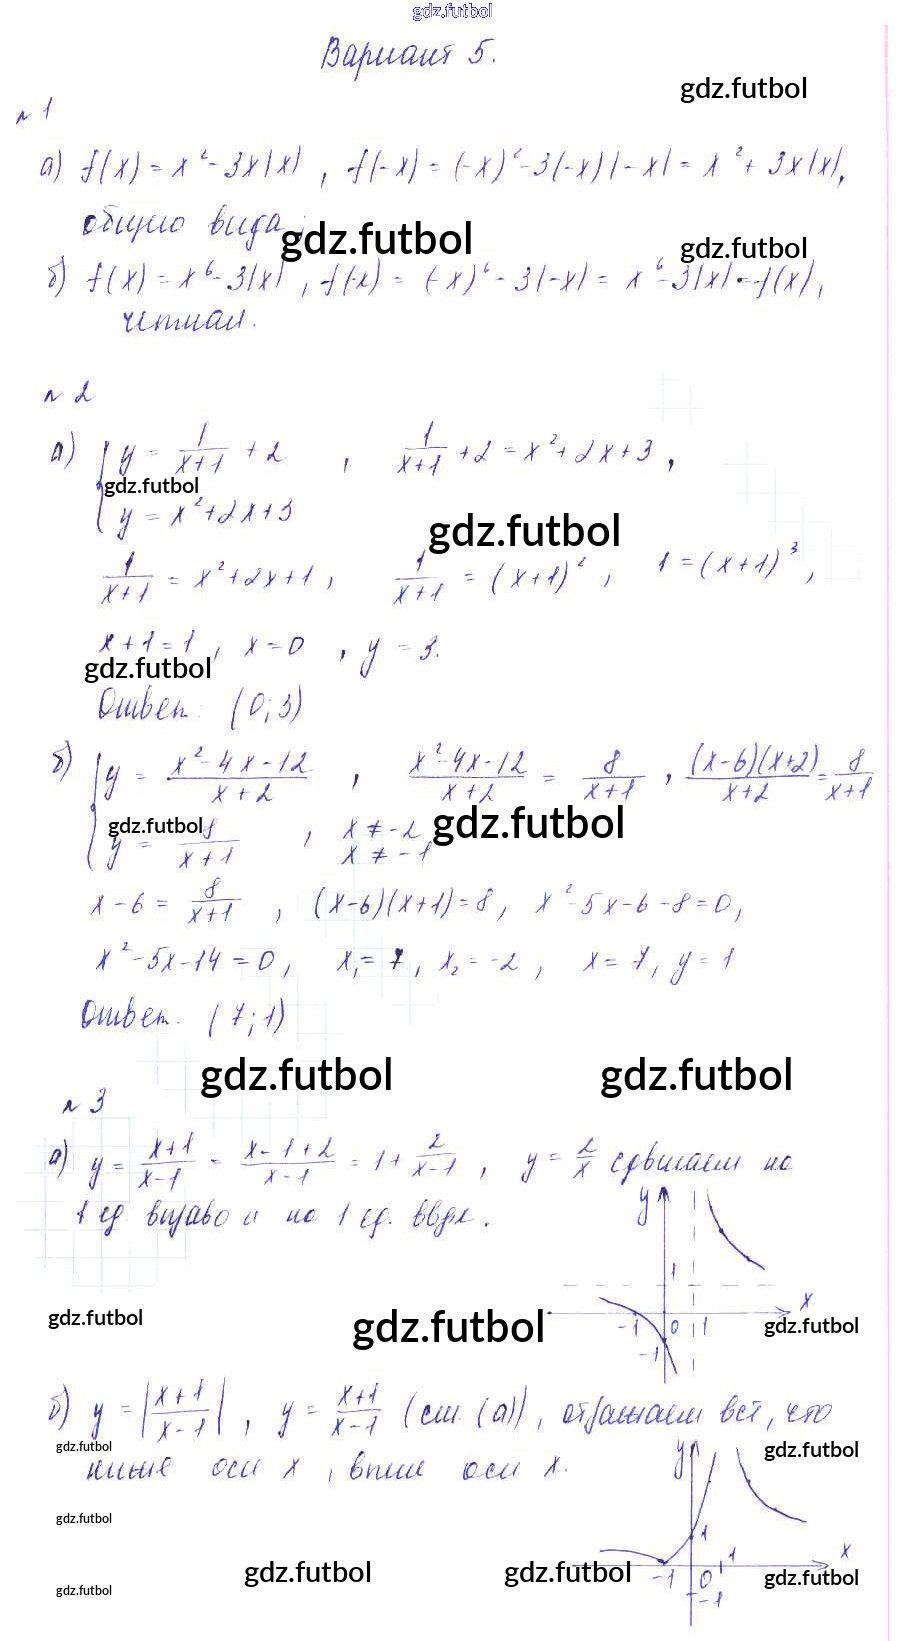 gdz.futbol
Вариант 5.
gdz.futbol
№ 1
а) f(x) = x² - 3x|x| , f(-x) = (-x)² - 3(-x)|-x| = x² + 3x|x|,
общего вида;
gdz.futbol gdz.futbol
б) f(x) = x⁶ - 3|x| , f(-x) = (-x)⁶ - 3|-x| = x⁶ - 3|x| = f(x),
четная.
№ 2
а) { y = 1/(x+1) + 2 , 1/(x+1) + 2 = x² + 2x + 3 ,
gdz.futbol
y = x² + 2x + 3
gdz.futbol
1/(x+1) = x² + 2x + 1 , 1/(x+1) = (x+1)² , 1 = (x+1)³ ,
x + 1 = 1 , x = 0 , y = 3.
gdz.futbol
Ответ: (0; 3)
б) { y = (x² - 4x - 12)/(x + 2) , (x² - 4x - 12)/(x + 2) = 8/(x + 1) , (x-6)(x+2)/(x+2) = 8/(x+1)
gdz.futbol gdz.futbol
y = 8/(x + 1) , x ≠ -2
x ≠ -1
x - 6 = 8/(x+1) , (x-6)(x+1) = 8 , x² - 5x - 6 - 8 = 0 ,
x² - 5x - 14 = 0 , x₁ = 7 , x₂ = -2 , x = 7 , y = 1
Ответ. (7; 1)
gdz.futbol gdz.futbol
№ 3
а) y = (x+1)/(x-1) = (x-1+2)/(x-1) = 1 + 2/(x-1) , y = 2/x сдвигаем на
1 ед вправо и на 1 ед. вверх.
y
1
x
-1 0 1
-1
gdz.futbol gdz.futbol gdz.futbol
б) y = |(x+1)/(x-1)| , y = (x+1)/(x-1) (см. (а)) , отражаем всё, что
gdz.futbol gdz.futbol
ниже оси x , выше оси x.
y
gdz.futbol
1
x
-1 0 1
-1
gdz.futbol gdz.futbol gdz.futbol
gdz.futbol